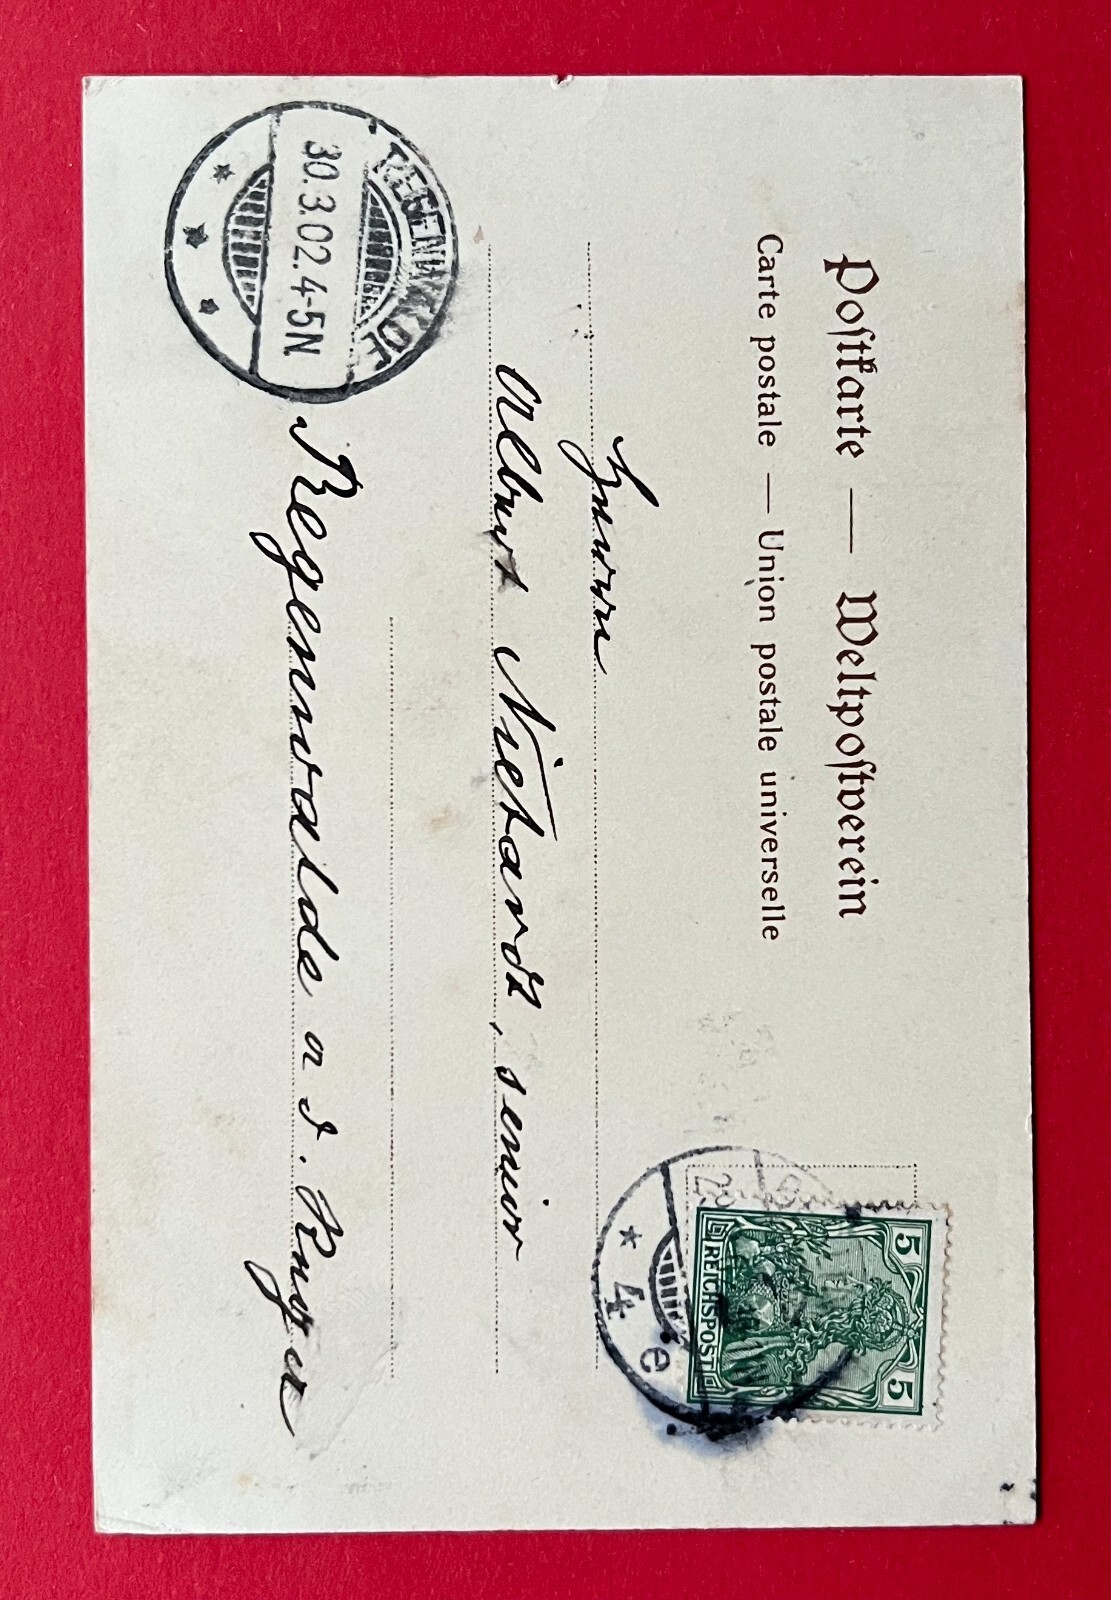 Postkarte — Weltpostverein
Carte postale — Union postale universelle
5 5
REICHSPOST
* 4 e
Herrn
Albert Nietardt, senior
Regenwalde a d. Rega
REGENWALDE
30.3.02.4-5N.